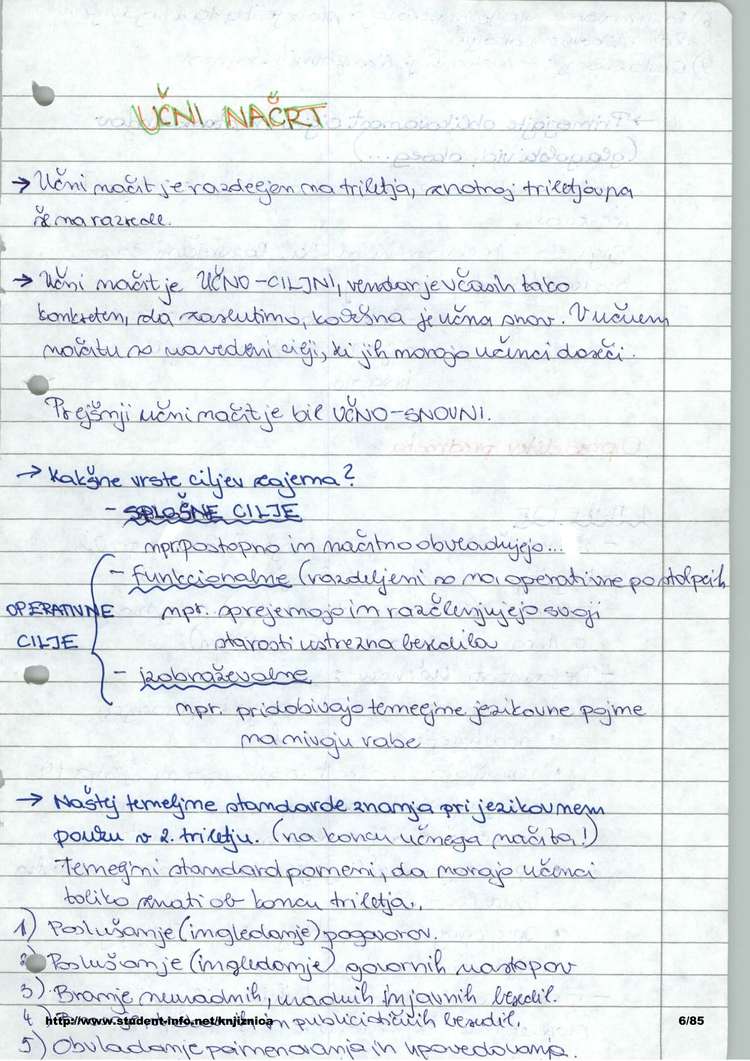 UČNI NAČRT
→ Učni načrt je razdeljen na triletja, znotraj triletja pa
še na razrede.
→ Učni načrt je UČNO-CILJNI, vendar je včasih tako
konkreten, da zaslutimo, kakšna je učna snov. V učnem
načrtu so navedeni cilji, ki jih morajo učenci doseči.
Prejšnji učni načrt je bil UČNO-SNOVNI.
→ Kakšne vrste ciljev zajema?
- SPLOŠNE CILJE
npr. postopno in načrtno obvladujejo...
- funkcionalne (razdeljeni so na operativne po stolpcih
OPERATIVNE npr. sprejemajo in razčlenjujejo svoji
CILJE starosti ustrezna besedila
- izobraževalne
npr. pridobivajo temeljne jezikovne pojme
na nivoju rabe
→ Naštej temeljne standarde znanja pri jezikovnem
pouku v 2. triletju. (na koncu učnega načrta!)
Temeljni standard pomeni, da morajo učenci
toliko znati ob koncu triletja.
1) Poslušanje (in gledanje) pogovorov.
2) Poslušanje (in gledanje) govornih nastopov
3) Branje neuradnih, uradnih in javnih besedil.
4) in publicističnih besedil.
http://www.student-info.net/knjiznica 6/85
5) Obvladanje poimenovanja in upovedovanja.